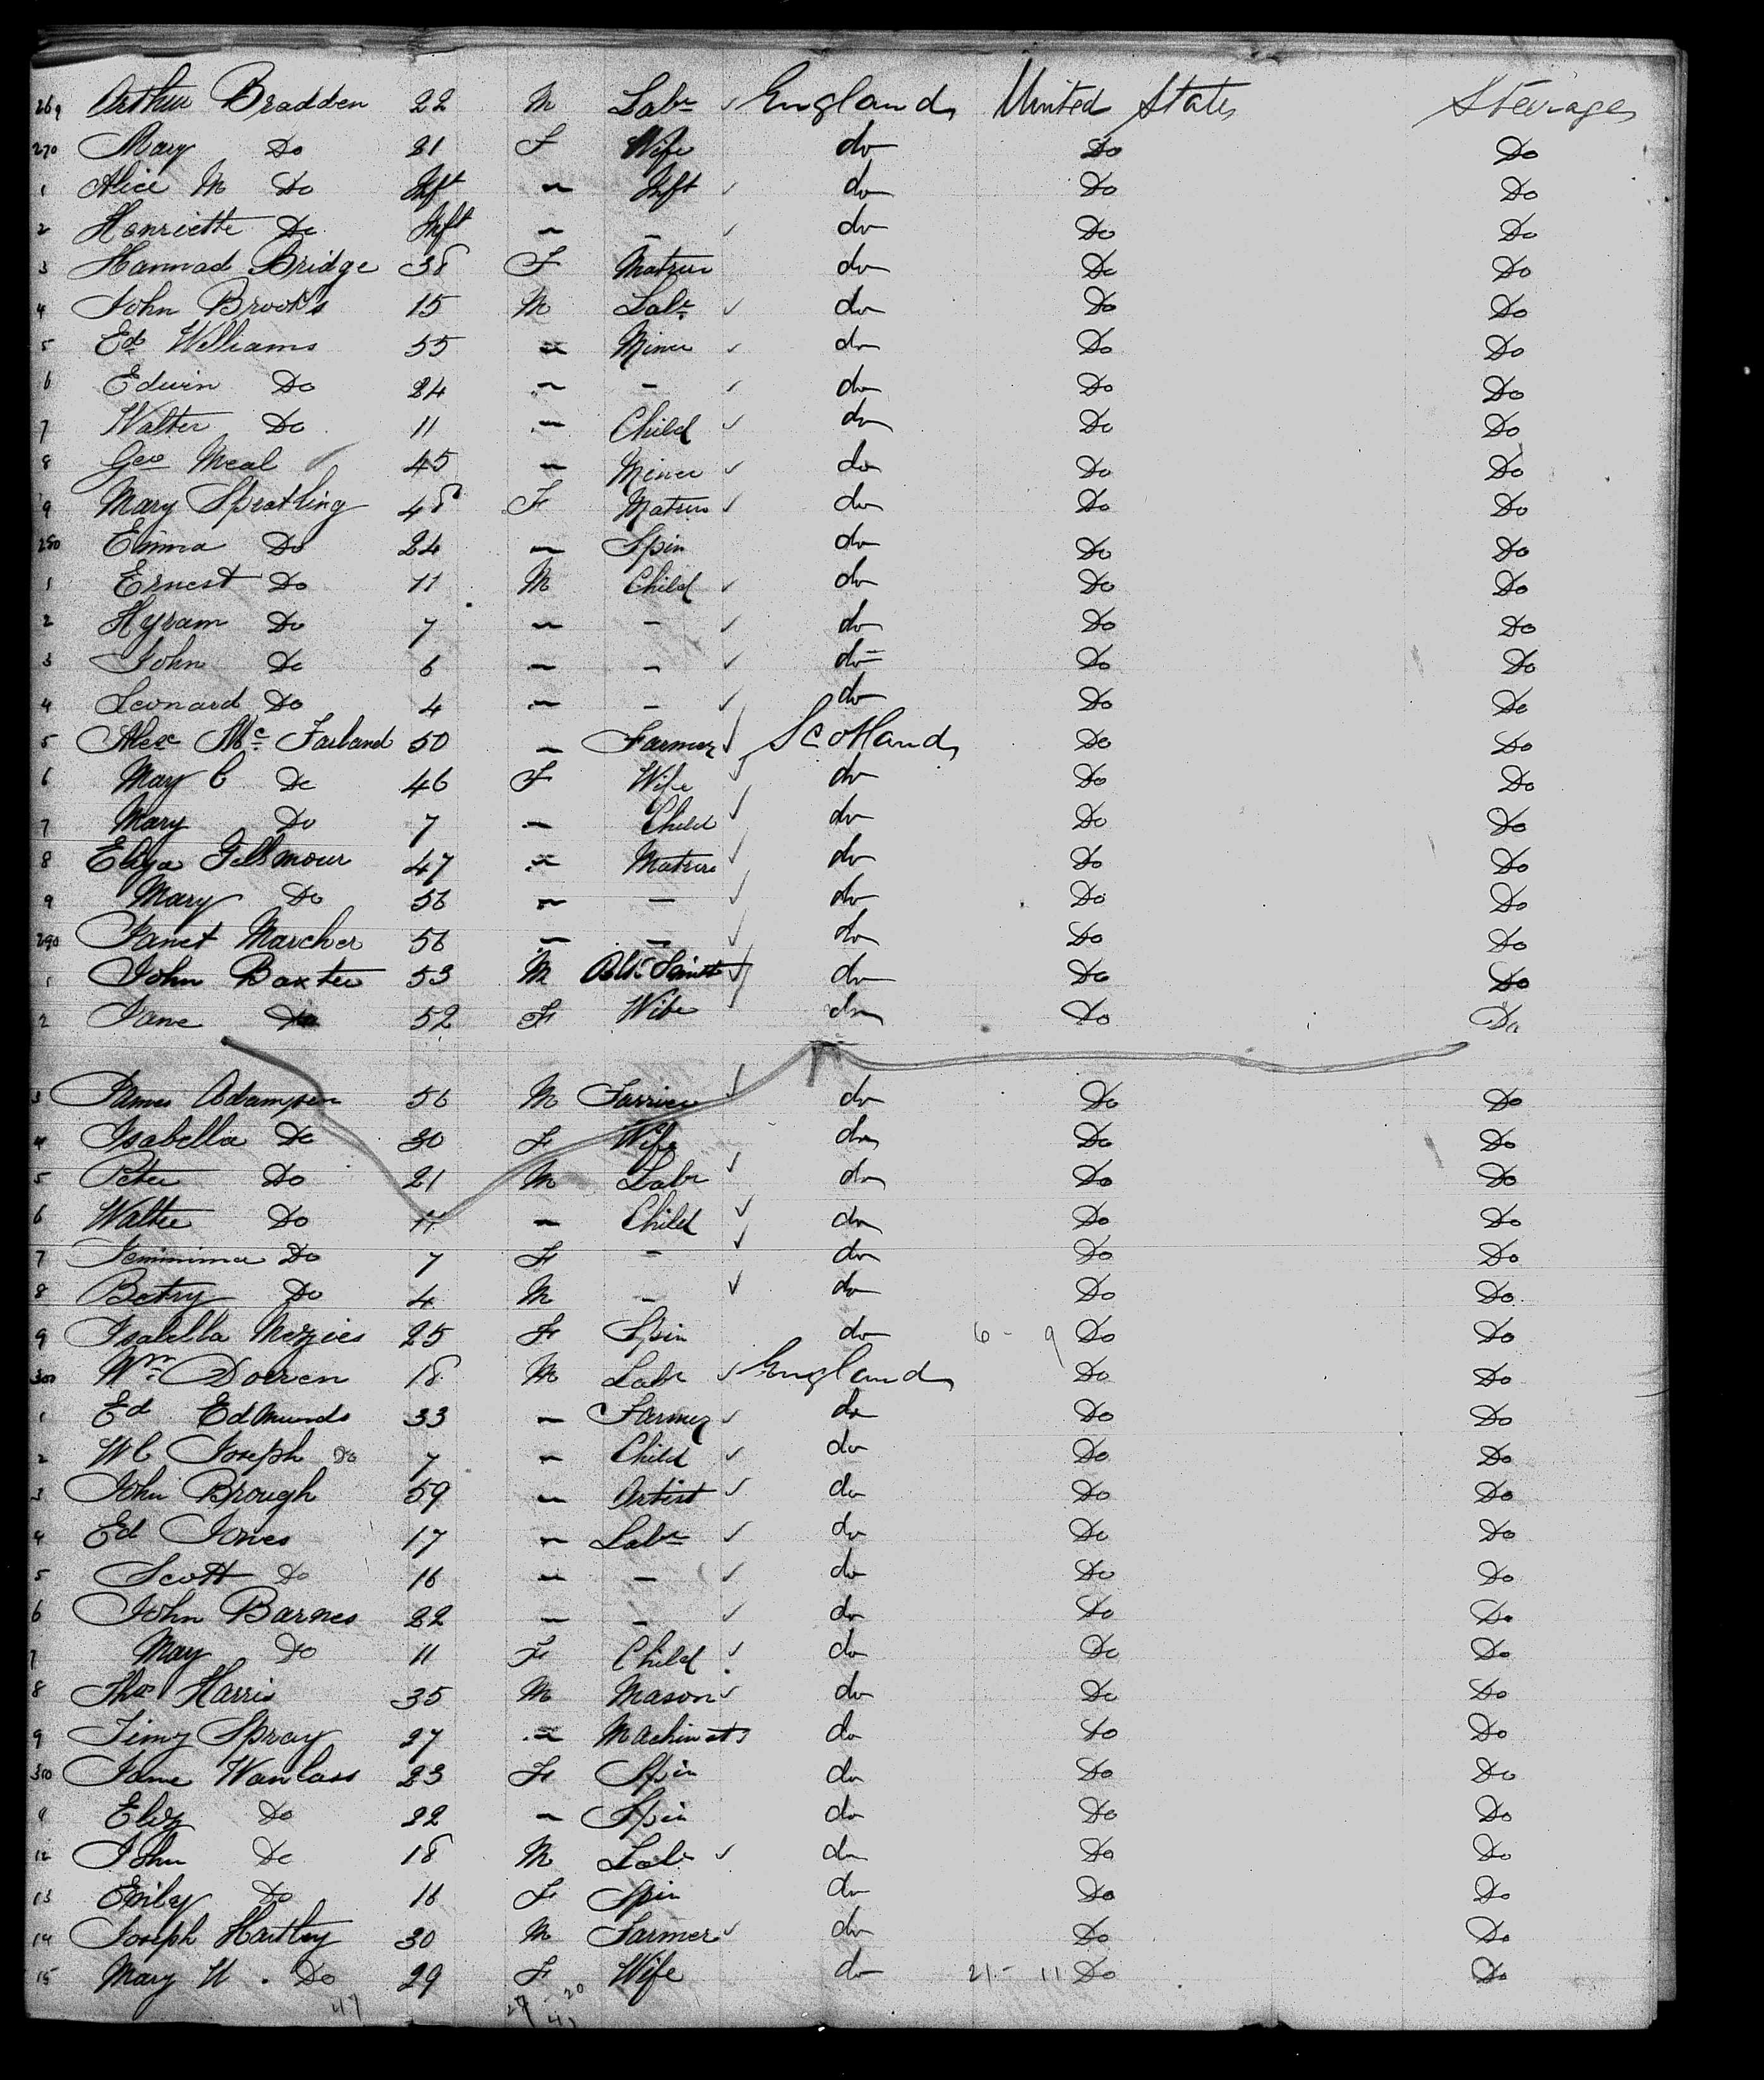 269 Arthur Bradden 22 M Labr England United States Steerage
270 Mary Do 21 F Wife do Do Do
1 Alice M Do Inft — Inft do Do Do
2 Henriette Do Inft — — do Do Do
3 Hannad Bridge 38 F Matron do Do Do
4 John Brooks 15 M Labr do Do Do
5 Ed Williams 55 — Miner do Do Do
6 Edwin Do 24 — — do Do Do
7 Walter Do 11 — Child do Do Do
8 Geo Meal 45 — Miner do Do Do
9 Mary Spratling 48 F Matron do Do Do
280 Emma Do 24 — Spin do Do Do
1 Ernest Do 11 M Child do Do Do
2 Hyram Do 7 — — do Do Do
3 John Do 6 — — do Do Do
4 Leonard Do 4 — — do Do Do
5 Alex Mc Farland 50 — Farmer Scotland Do Do
6 Mary C Do 46 F Wife do Do Do
7 Mary Do 7 — Child do Do Do
8 Eliza Gillmour 47 — Matron do Do Do
9 Mary Do 56 — — do Do Do
290 Janet Marcher 56 — — do Do Do
1 John Baxter 53 M do Do Do
2 Jane Do 52 F Wife do Do Do
3 James Adampson 56 M Farrier do Do Do
4 Isabella Do 30 F Wife do Do Do
5 Peter Do 21 M Labr do Do Do
6 Walter Do 11 — Child do Do Do
7 Jemmima Do 7 F — do Do Do
8 Betsy Do 4 M — do Do Do
9 Isabella Mezies 25 F Spin do 6 - 9 Do Do
300 Wm Dorren 18 M Labr England Do Do
1 Ed Edmunds 33 — Farmer do Do Do
2 W C Joseph Do 7 — Child do Do Do
3 John Brough 59 — Artist do Do Do
4 Ed Jones 17 — Labr do Do Do
5 Scott Do 16 — — do Do Do
6 John Barnes 22 — — do Do Do
7 May Do 11 F Child do Do Do
8 Thos Harris 35 M Mason do Do Do
9 Jimy Spray 27 — Machinist do Do Do
310 Jane Wanlass 23 F Spin do Do Do
Eliz Do 22 — Spin do Do Do
12 John Do 18 M Labr do Do Do
13 Emily Do 16 F Spin do Do Do
14 Joseph Hartley 30 M Farmer do Do Do
15 Mary W. Do 29 F Wife do 21 - 11 Do Do
47 27 20